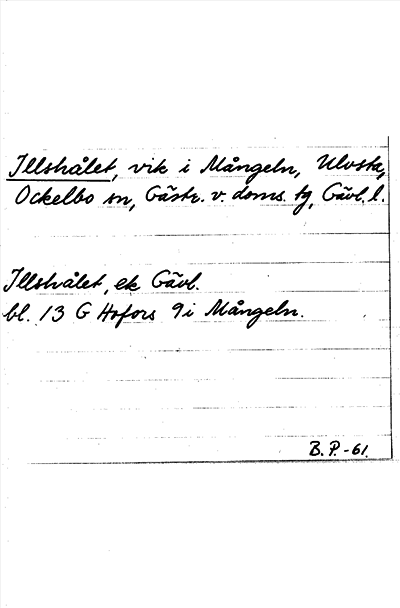 Illshålet, vik i Mångeln, Ulvsta,
Ockelbo sn, Gästr. v. doms. tg, Gävl. l.
Illshålet, ek Gävl.
bl. 13 G Hofors 9i Mångeln.
B. P. -61.